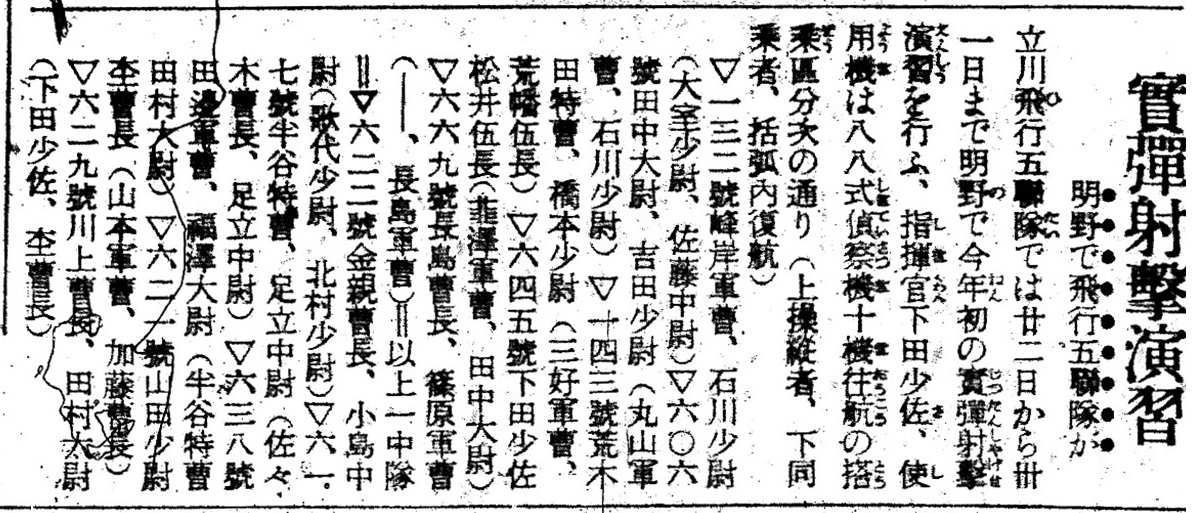 實彈射擊演習
明野で飛行五聯隊が
立川飛行五聯隊では廿二日から卅
一日まで明野で今年初の實彈射擊
演習を行ふ、指揮官下田少佐、使
用機は八八式偵察機十機往航の搭
乘區分次の通り（上操縱者、下同
乘者、括弧內復航）
▽一三二號峰岸軍曹、石川少尉
（大室少尉、佐藤中尉）▽六〇六
號田中大尉、吉田少尉（丸山軍
曹、石川少尉）▽一四三號荒木
田特曹、橋本少尉（三好軍曹、
荒幡伍長）▽六四五號下田少佐
松井伍長（韮澤軍曹、田中大尉）
▽六六九號長島曹長、篠原軍曹
（――、長島軍曹）＝以上一中隊
＝▽六二二號金親曹長、小島中
尉（歌代少尉、北村少尉）▽六一
七號半谷特曹、足立中尉（佐々
木曹長、足立中尉）▽六三八號
田邊軍曹、福澤大尉（半谷特曹
田村大尉）▽六二一號山田少尉
杢曹長（山本軍曹、加藤曹長）
▽六二九號川上曹長、田村大尉
（下田少佐、杢曹長）